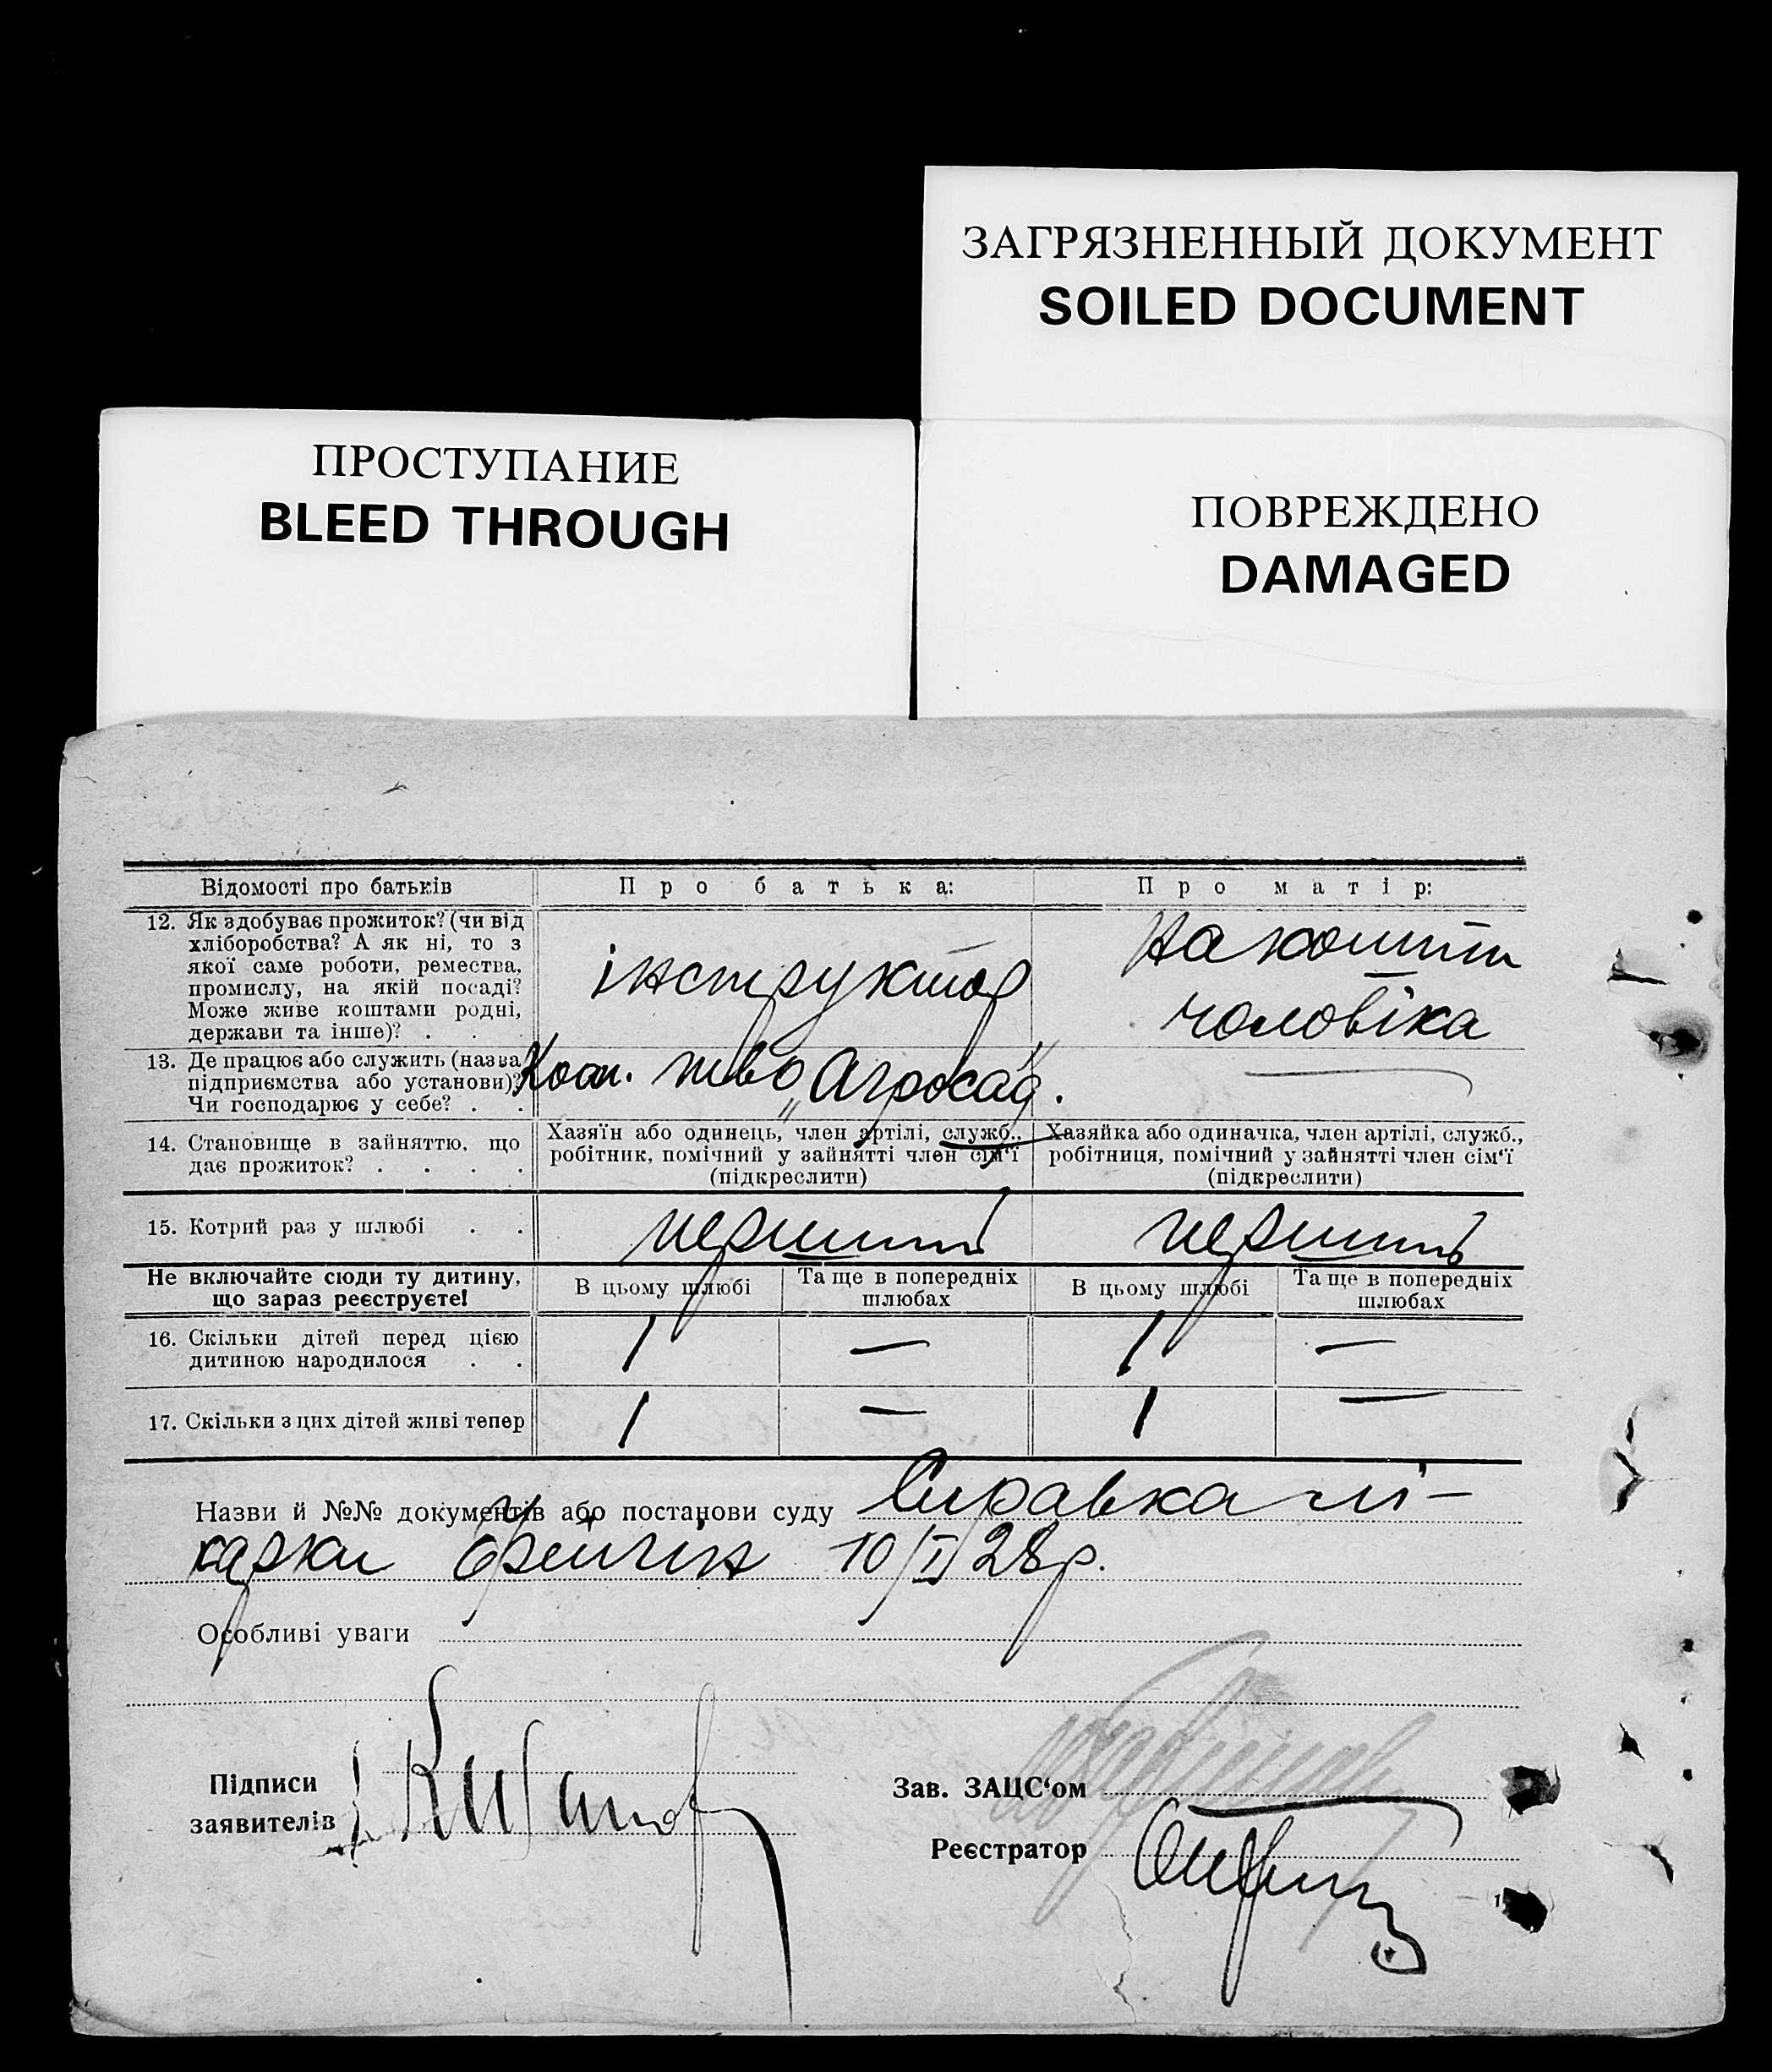 ЗАГРЯЗНЕННЫЙ ДОКУМЕНТ
SOILED DOCUMENT
ПРОСТУПАНИЕ
BLEED THROUGH
ПОВРЕЖДЕНО
DAMAGED
Відомості про батьків
Про батька:
Про матір:
12. Як здобуває прожиток? (чи від
хліборобства? А як ні, то з
якої саме роботи, ремества,
промислу, на якій посаді?
Може живе коштами родні,
держави та інше)? . . .
інструктор
На кошти
чоловіка
13. Де працює або служить (назва
підприємства або установи)?
Чи господарює у себе? . .
Кооп. т-во „Агросад".
—
14. Становище в зайняттю, що
дає прожиток? . . . .
Хазяїн або одинець, член артілі, служб.,
робітник, помічний у зайнятті член сім‘ї
(підкреслити)
Хазяйка або одиначка, член артілі, служб.,
робітниця, помічний у зайнятті член сім‘ї
(підкреслити)
15. Котрий раз у шлюбі . .
перший
перший
Не включайте сюди ту дитину,
що зараз реєструєте!
В цьому шлюбі
Та ще в попередніх
шлюбах
В цьому шлюбі
Та ще в попередніх
шлюбах
16. Скільки дітей перед цією
дитиною народилося . .
1 — 1 —
17. Скільки з цих дітей живі тепер
1 — 1 —
Назви й №№ документів або постанови суду Справка лі-
карки 10/I 28 р.
Особливі уваги
Підписи
заявителів
Зав. ЗАЦС‘ом
Реєстратор